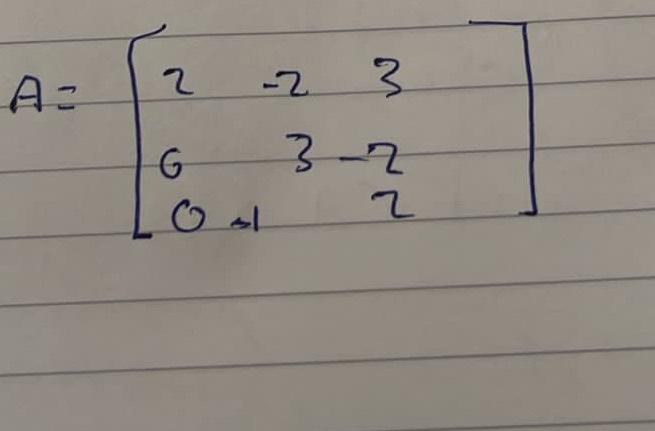 A = [ 2 -2 3
6 3 -2
0 -1 2 ]